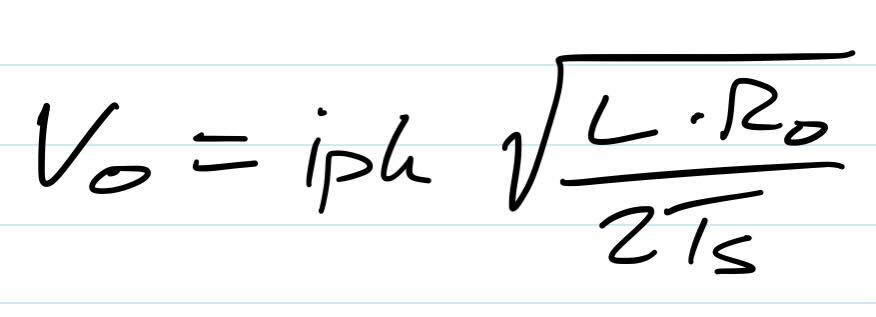 V₀ = ipk √(L · R₀ / 2Ts)